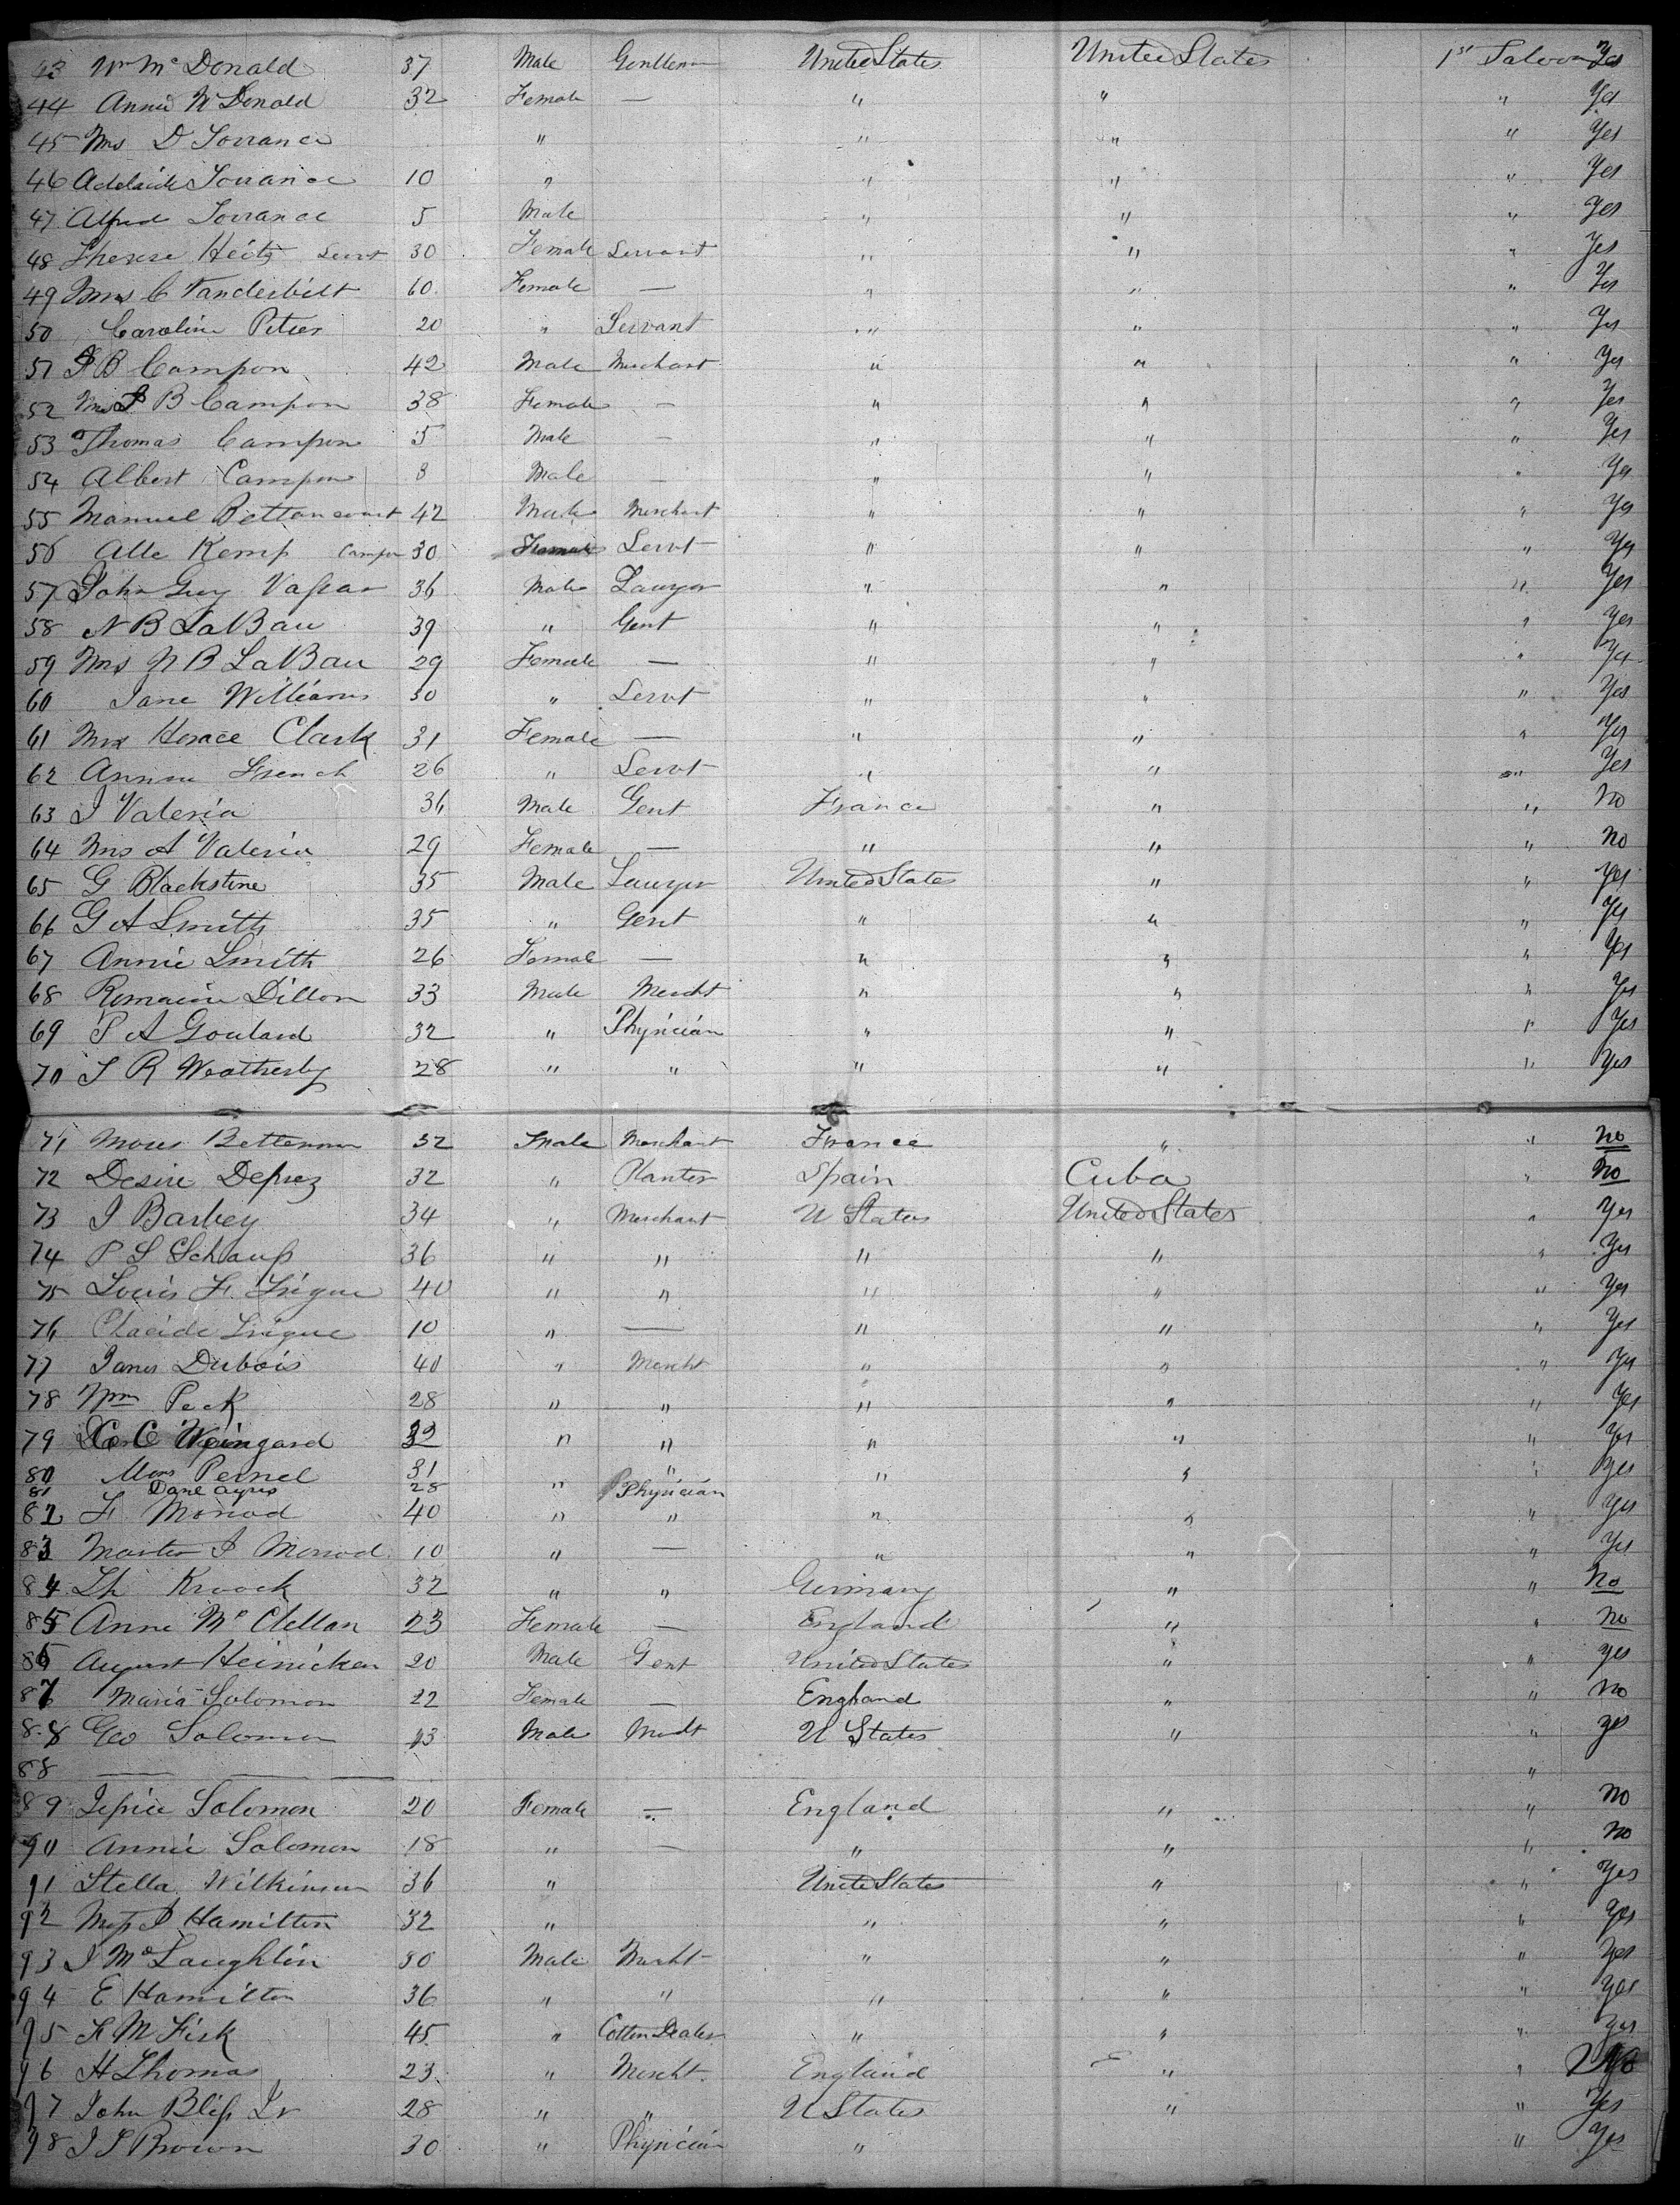 43 Wm McDonald 37 Male Gentlem United States United States 1st Saloon Yes
44 Annie McDonald 32 Female — " " " Yes
45 Mrs D Torrance " " " " Yes
46 Adelaide Torrance 10 " " " " Yes
47 Alfred Torrance 5 Male " " " Yes
48 Therese Heitz Servt 30 Female Servant " " " Yes
49 Mrs C Vanderbilt 60 Female — " " " Yes
50 Caroline Peters 20 " Servant " " " Yes
51 B Campon 42 Male Merchant " " " Yes
52 Mrs B Campon 38 Female — " " " Yes
53 Thomas Campon 5 Male — " " " Yes
54 Albert Campon 8 Male — " " " Yes
55 Manuel Bettancourt 42 Male Merchant " " " Yes
56 Alle Kemp Campon 30 Female Servt " " " Yes
57 John Guy Vaſsar 36 Male Lawyer " " " Yes
58 N B LaBau 39 " Gent " " " Yes
59 Mrs N B LaBau 29 Female — " " " Yes
60 Jane Williams 30 " Servt " " " Yes
61 Mrs Horace Clark 31 Female — " " " Yes
62 French 26 " Servt " " " Yes
63 J Valeria 36 Male Gent France " " No
64 Mrs A Valeria 29 Female — " " " No
65 G Blackstone 35 Male Lawyer United States " " Yes
66 G A Smith 35 " Gent " " " Yes
67 Annie Smith 26 Female — " " " Yes
68 Romaine Dillon 33 Male Mercht " " " Yes
69 P A Goulard 32 " Physician " " " Yes
70 S R Weatherby 28 " " " " " Yes
71 32 Male Merchant France " " no
72 Desire Deprez 32 " Planter Spain Cuba " No
73 J Barbey 34 " Merchant U States United States " Yes
74 P S Schauſs 36 " " " " " Yes
75 Louis F. 40 " " " " " Yes
76 Placide 10 " — " " " Yes
77 James Dubois 40 " Mercht " " " Yes
78 Wm Peck 28 " " " " " Yes
79 C Weingard 32 " " " " " Yes
80 Mons Pernel 31 " " " " Yes
81 Danl Ayres 28 " Physician
82 F Monod 40 " " " " " Yes
83 Master J Monod 10 " — " " " Yes
84 Th Kroock 32 " " Germany " " No
85 Anne McClellan 23 Female — England " " No
86 August Heinicken 20 Male Gent United States " " yes
87 Maria Solomon 22 Female — England " " No
88 Geo Solomon 23 Male Mercht U States " " yes
88 — — — "
89 Jeſsie Solomon 20 Female — England " " No
90 Annie Solomon 18 " — " " " No
91 Stella Wilkinson 36 " United States " " Yes
92 Miſs J Hamilton 32 " " " " Yes
93 J McLaughlin 30 Male Mercht " " " Yes
94 E Hamilton 36 " " " " " Yes
95 F M Fisk 45 " Cotton Dealer " " " Yes
96 H Thomas 23 " Mercht. England " "
97 John Bliſs Jr 28 " " U States " " Yes
98 J S Brown 30 " Physician " " Yes